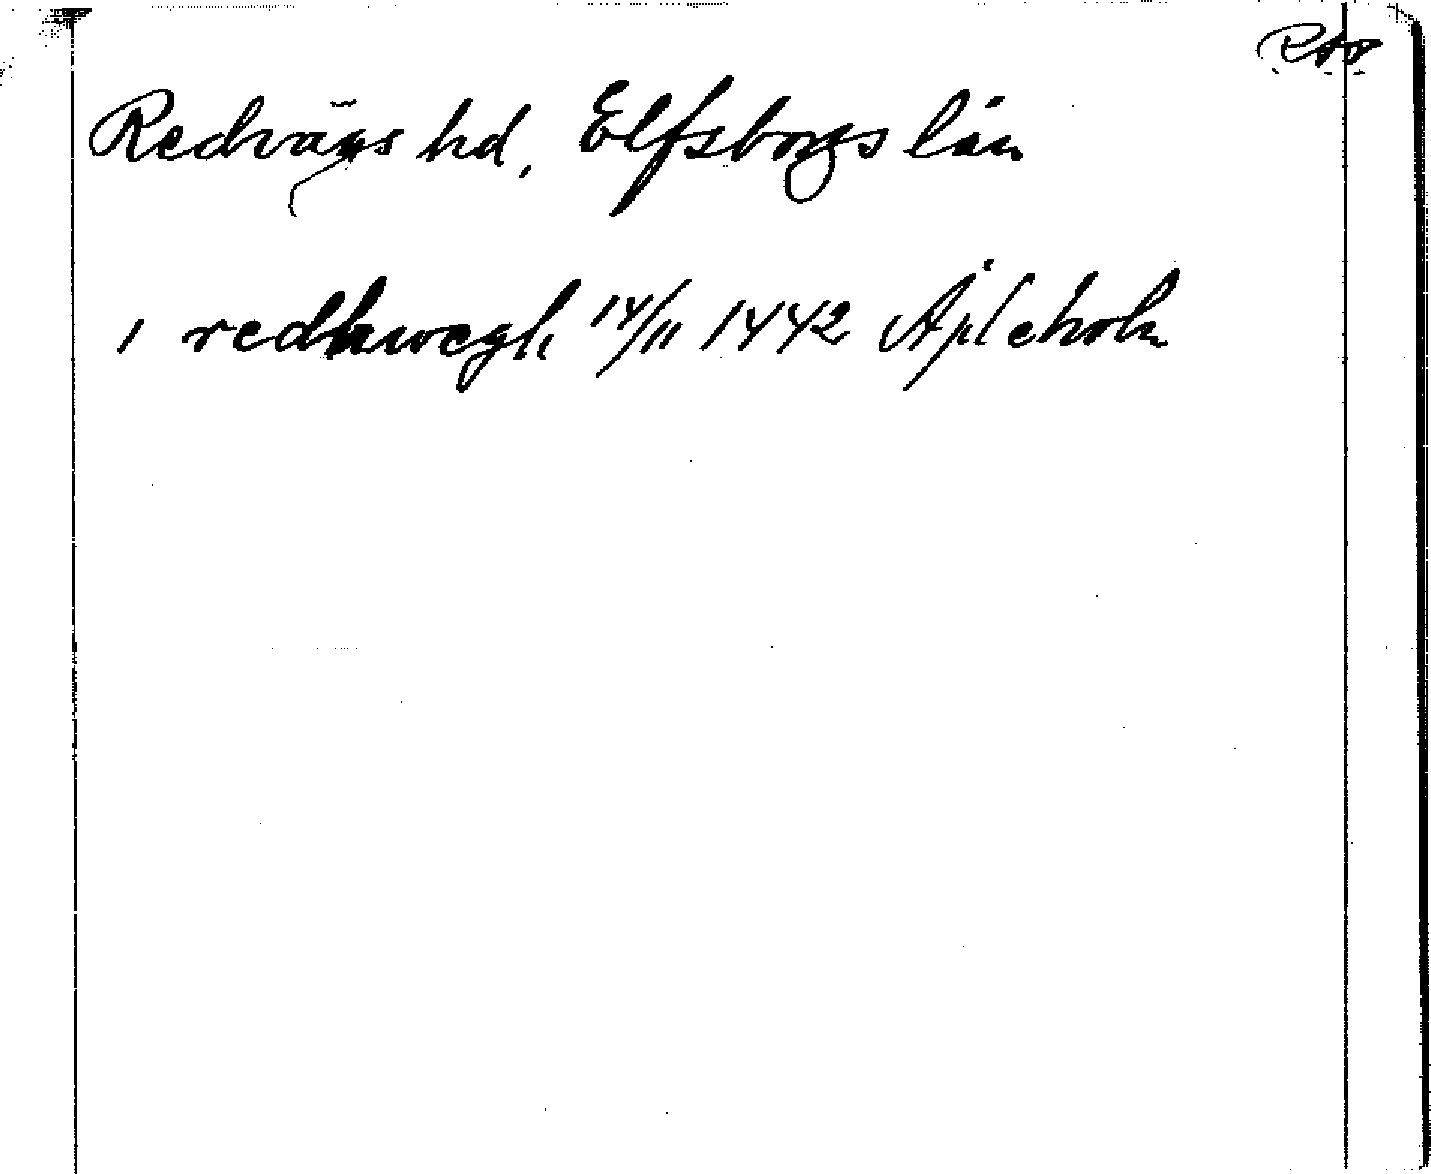 Redvägs hd, Elfsborgs län
i redhwegh 14/11 1442 Äpleholm